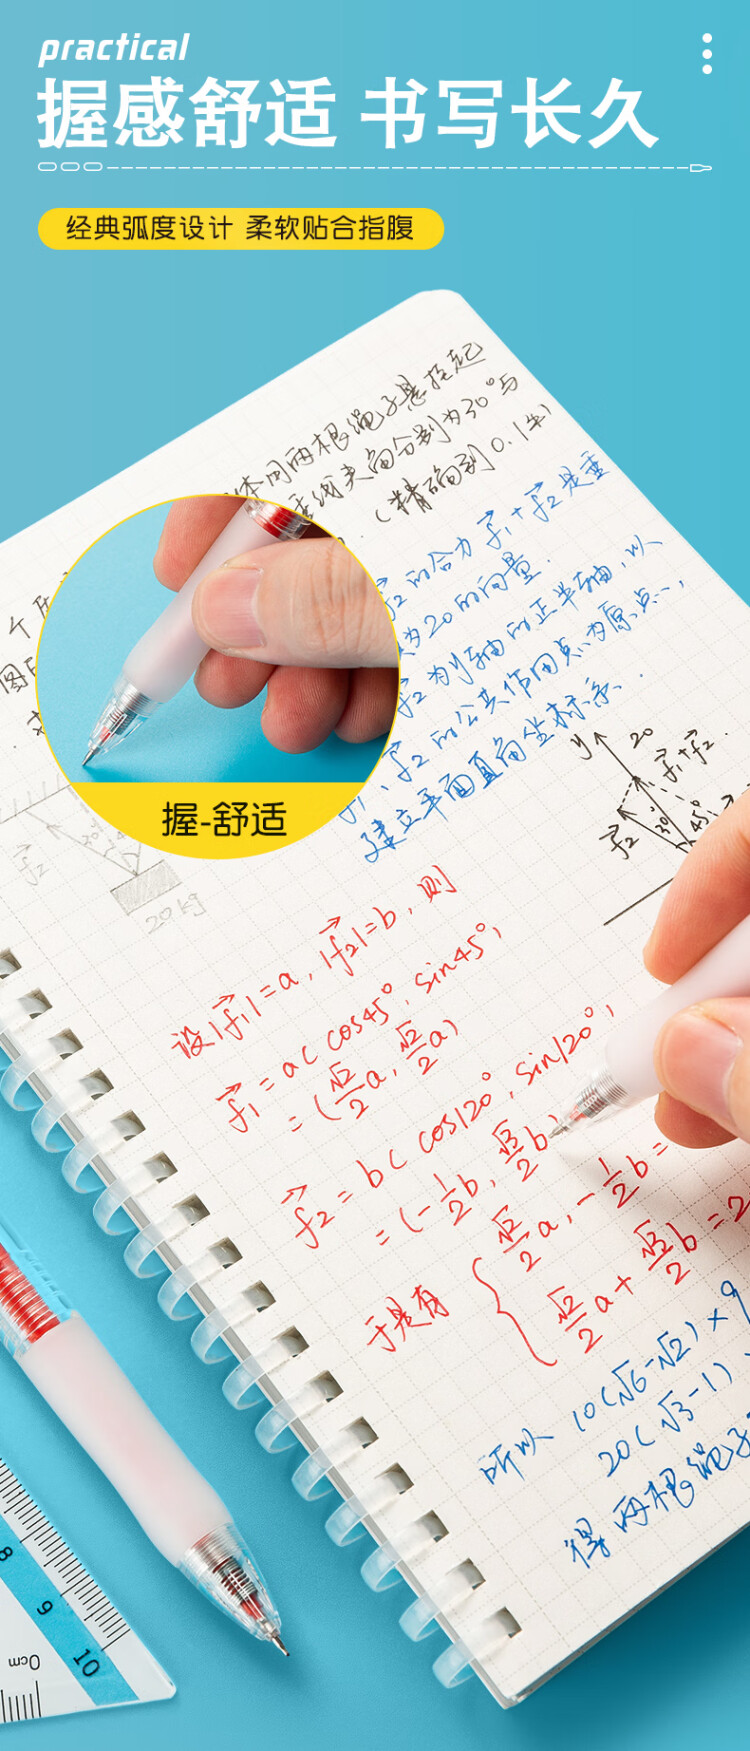 practical
握感舒适 书写长久
经典弧度设计 柔软贴合指腹
体用两根绳子悬挂起
垂线夹角分别为30°与
(精确到0.1牛)
个
图
f₂的合力 f₁+f₂是垂
为20的向量.
f₂为y轴的正半轴,以
f₁、f₂的公共作用点为原点,
建立平面直角坐标系.
握-舒适
y
20
f₁+f₂
f₂
30°
45°
f₂
30°
20kg
设|f₁|=a,|f₂|=b,则
f₁=a(cos45°,sin45°,
=(√2/2a,√2/2a)
f₂=b(cos120°,sin120°,
=(-1/2b,√3/2b
于是有
√2/2a,-1/2b=
√2/2a+√3/2b=2
所以 10(√6-√2)×9
20(√3-1)
得两根绳子
8
9
10
0cm